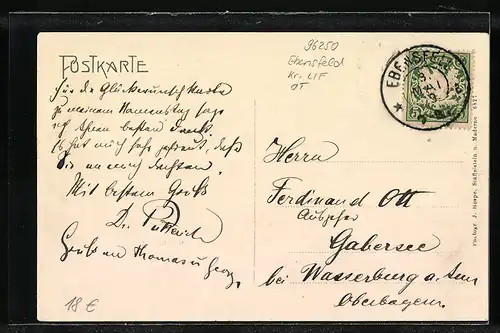 POSTKARTE
96250
Ebensfeld
Kr. LIF
OT
EBENSFELD
Für die Glückwunschkarte
zu meinem Namenstag sage
ich Ihnen besten Dank.
Es hat mich sehr gefreut, daß
Sie an mich dachten.
Mit bestem Gruß
Dr.
Gruß an Thomas u. Georg.
18 €
Herrn
Ferdinand Ott
Gabersee
bei Wasserburg a. Inn
Oberbayern.
Verlag J. Staffelstein u.